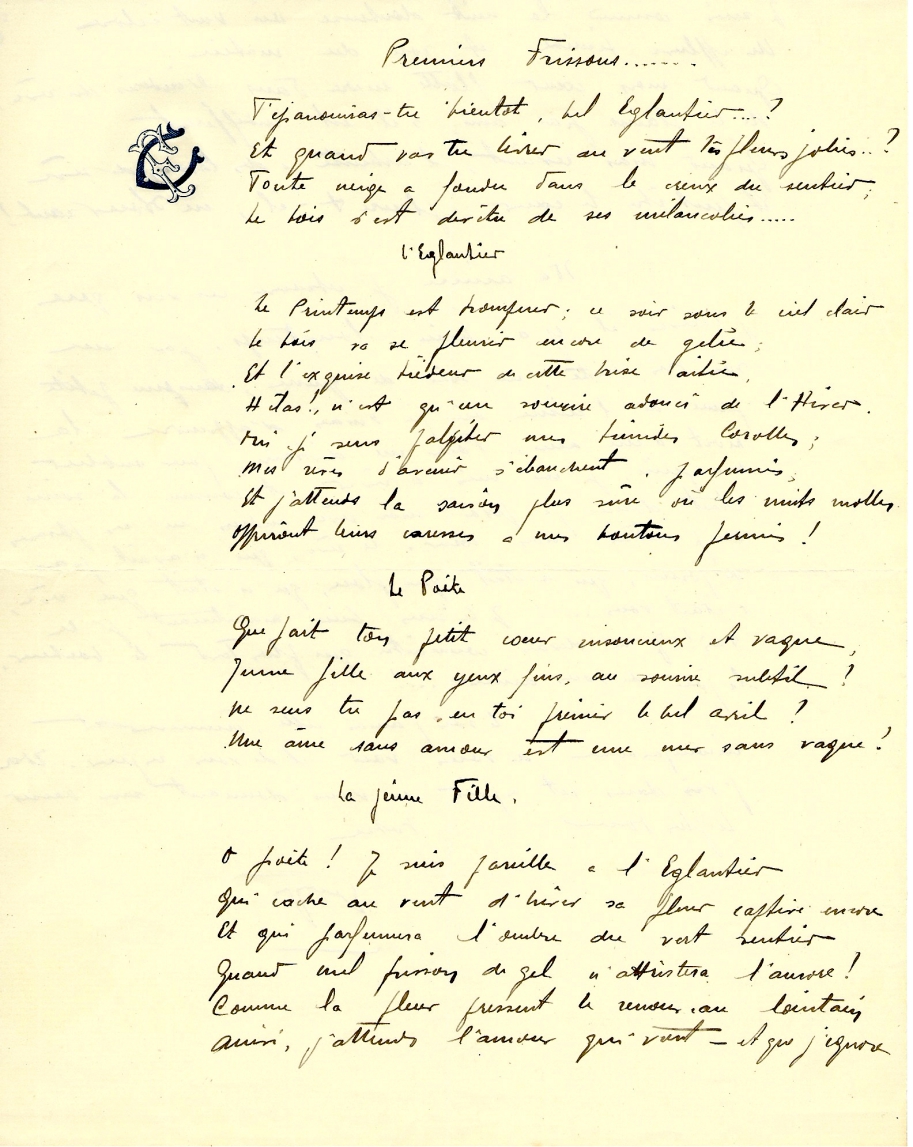 Premiers Frissons.......
T'épanouiras-tu bientôt, bel Eglantier....?
Et quand vas tu livrer au vent tes fleurs jolies..?
Toute neige a fondu dans le creux du sentier;
Le bois s'est dévêtu de ses mélancolies.....
L'Eglantier
Le Printemps est trompeur; ce soir sous le ciel clair
Le bois va se fleurir encore de gelée;
Et l'exquise tiédeur de cette brise ailée,
Hélas!, n'est qu'un sourire adouci de l'Hiver.
Oui je sens palpiter mes timides Corolles;
Mes rêves d'avenir s'ébauchent, parfumés,
Et j'attends la saison plus sûre où les nuits molles
Offriront leurs caresses à mes boutons fermés!
Le Poète
Que fait ton petit coeur insoucieux et vague,
Jeune fille aux yeux fins, au sourire subtil?
Ne sens tu pas en toi frémir le bel avril?
Une âme sans amour est une mer sans vague!
La jeune Fille.
O poète! Je suis pareille à l'Eglantier
Qui cache au vent d'hiver sa fleur captive encore
Et qui parfumera l'ombre du vert sentier
Quand nul frisson de gel n'attristera l'aurore!
Comme la fleur pressent le renouveau lointain
Ainsi, j'attends l'amour qui vient — et que j'ignore